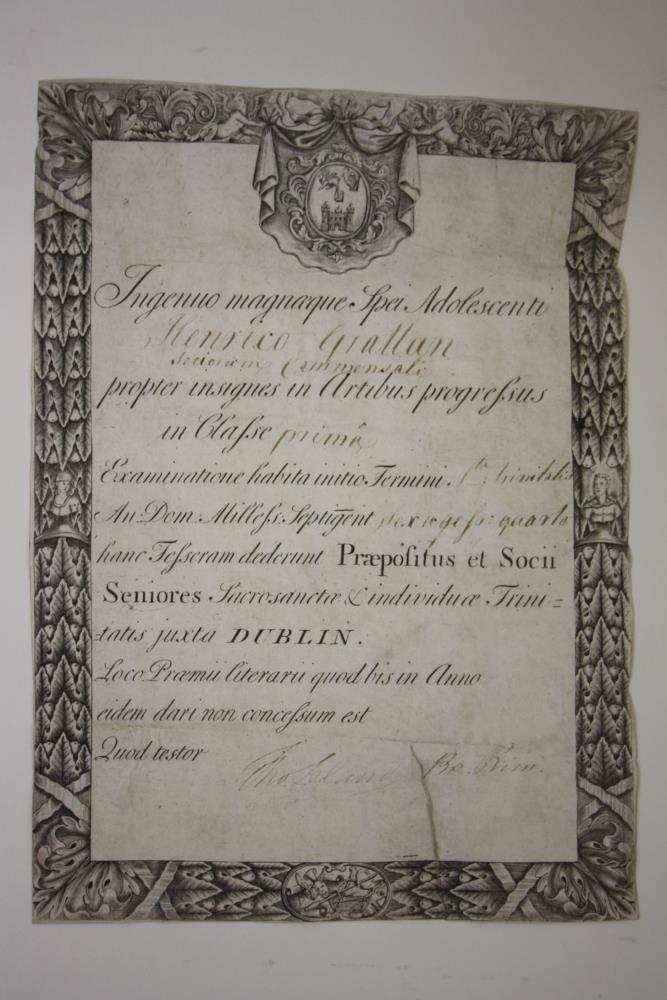 Ingenuo magnæque Spei Adolescenti
Henrico Grattan
Sociorum Commensali
propter insignes in Artibus progreſsus
in Claſse primâ
Examinatione habita initio Termini Sto. Trinitatis
An: Dom: Milleſs: Septigent sexagess: quarto
hanc Teſseram dederunt Præpoſitus et Socii
Seniores Sacrosanctæ & individuæ Trini=
tatis juxta DUBLIN.
Loco Præmii literarii quod bis in Anno
eidem dari non conceſsum est
Quod testor
Tho